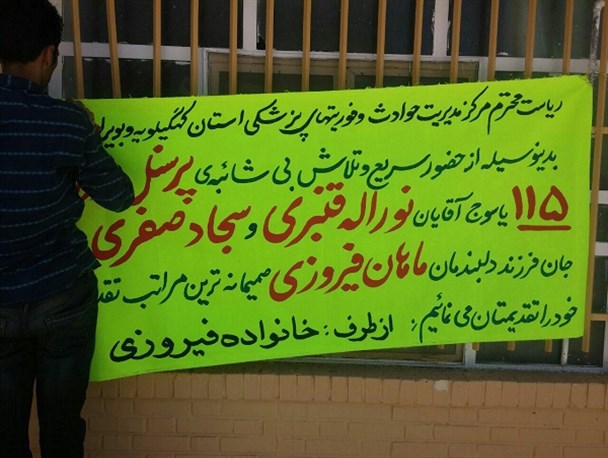 ریاست محترم مرکز مدیریت حوادث و فوریتهای پزشکی استان کهگیلویه و بویرا
بدینوسیله از حضور سریع و تلاش بی شائبه‌ی پرسنل
۱۱۵ یاسوج آقایان نوراله قنبری و سجاد صفری
جان فرزند دلبندمان ماهان فیروزی صمیمانه ترین مراتب تقد
خود را تقدیمتان می نمائیم؛ از طرف: خانواده فیروزی